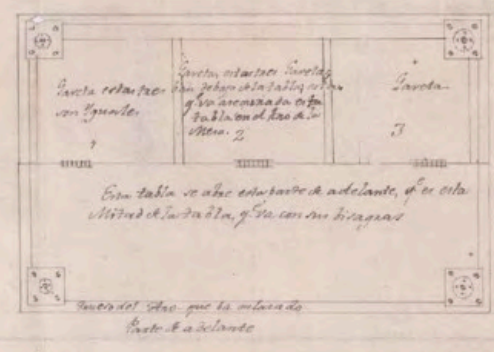 Gaveta estas tres
son Yguales
Gavetas, estas tres Gavetas
van debajo de la tabla,
q.e va arrimada esta
tabla en el Aro de la
Mesa. 2
Gaveta
3
Esta tabla se abre esta parte de adelante, q.e es esta
Mitad de la tabla, q.e va con sus bisagras
del Aro que ba
Parte de adelante